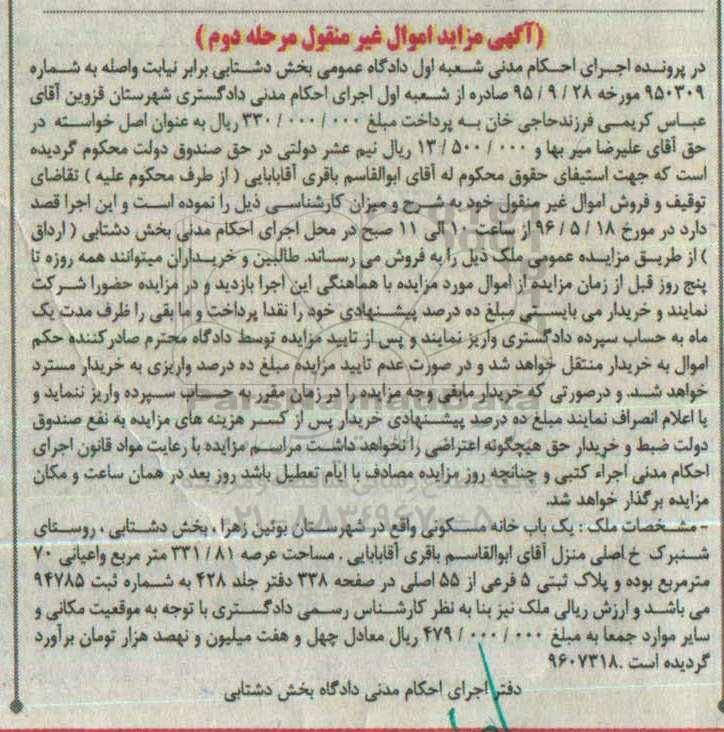 (آگهی مزاید اموال غیر منقول مرحله دوم)
در پرونده اجرای احکام مدنی شعبه اول دادگاه عمومی بخش دشتابی برابر نیابت واصله به شماره
۹۵۰۳۰۹ مورخه ۲۸ / ۹ / ۹۵ صادره از شعبه اول اجرای احکام مدنی دادگستری شهرستان قزوین آقای
عباس کریمی فرزندحاجی خان به پرداخت مبلغ ۰۰۰ / ۰۰۰ / ۳۳۰ ریال به عنوان اصل خواسته در
حق آقای علیرضا میر بها و ۰۰۰ / ۵۰۰ / ۱۳ ریال نیم عشر دولتی در حق صندوق دولت محکوم گردیده
است که جهت استیفای حقوق محکوم له آقای ابوالقاسم باقری آقابابایی ( از طرف محکوم علیه ) تقاضای
توقیف و فروش اموال غیر منقول خود به شرح و میزان کارشناسی ذیل را نموده است و این اجرا قصد
دارد در مورخ ۱۸ / ۵ / ۹۶ از ساعت ۱۰ الی ۱۱ صبح در محل اجرای احکام مدنی بخش دشتابی ( ارداق
) از طریق مزایده عمومی ملک ذیل را به فروش می رساند. طالبین و خریداران میتوانند همه روزه تا
پنج روز قبل از زمان مزایده از اموال مورد مزایده با هماهنگی این اجرا بازدید و در مزایده حضورا شرکت
نمایند و خریدار می بایستی مبلغ ده درصد پیشنهادی خود را نقدا پرداخت و ما بقی را ظرف مدت یک
ماه به حساب سپرده دادگستری واریز نمایند و پس از تایید مزایده توسط دادگاه محترم صادر کننده حکم
اموال به خریدار منتقل خواهد شد و در صورت عدم تایید مزایده مبلغ ده درصد واریزی به خریدار مسترد
خواهد شد. و درصورتی که خریدار مابقی وجه مزایده را در زمان مقرر به حساب سپرده واریز ننماید و
یا اعلام انصراف نمایند مبلغ ده درصد پیشنهادی خریدار پس از کسر هزینه های مزایده به نفع صندوق
دولت ضبط و خریدار حق هیچگونه اعتراضی را نخواهد داشت مراسم مزایده با رعایت مواد قانون اجرای
احکام مدنی اجراء کتبی و چنانچه روز مزایده مصادف با ایام تعطیل باشد روز بعد در همان ساعت و مکان
مزایده برگذار خواهد شد.
- مشخصات ملک : یک باب خانه مسکونی واقع در شهرستان بوئین زهرا ، بخش دشتابی ، روستای
شنبرک خ اصلی منزل آقای ابوالقاسم باقری آقابابایی . مساحت عرصه ۸۱ / ۳۳۱ متر مربع واعیانی ۷۰
مترمربع بوده و پلاک ثبتی ۵ فرعی از ۵۵ اصلی در صفحه ۳۳۸ دفتر جلد ۴۲۸ به شماره ثبت ۹۴۷۸۵
می باشد و ارزش ریالی ملک نیز بنا به نظر کارشناس رسمی دادگستری با توجه به موقعیت مکانی و
سایر موارد جمعا به مبلغ ۰۰۰ / ۰۰۰ / ۴۷۹ ریال معادل چهل و هفت میلیون و نهصد هزار تومان برآورد
گردیده است .۹۶۰۷۳۱۸
دفتر اجرای احکام مدنی دادگاه بخش دشتابی
ParsNamadData
۰۲۱-۸۸۳۴۹۶۷۰-۵